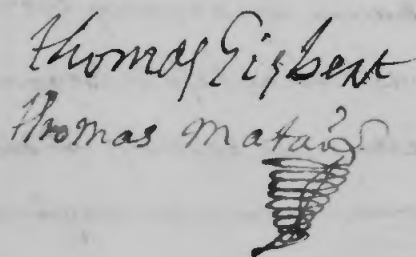 Thomas Gisbert
Thomas Matais